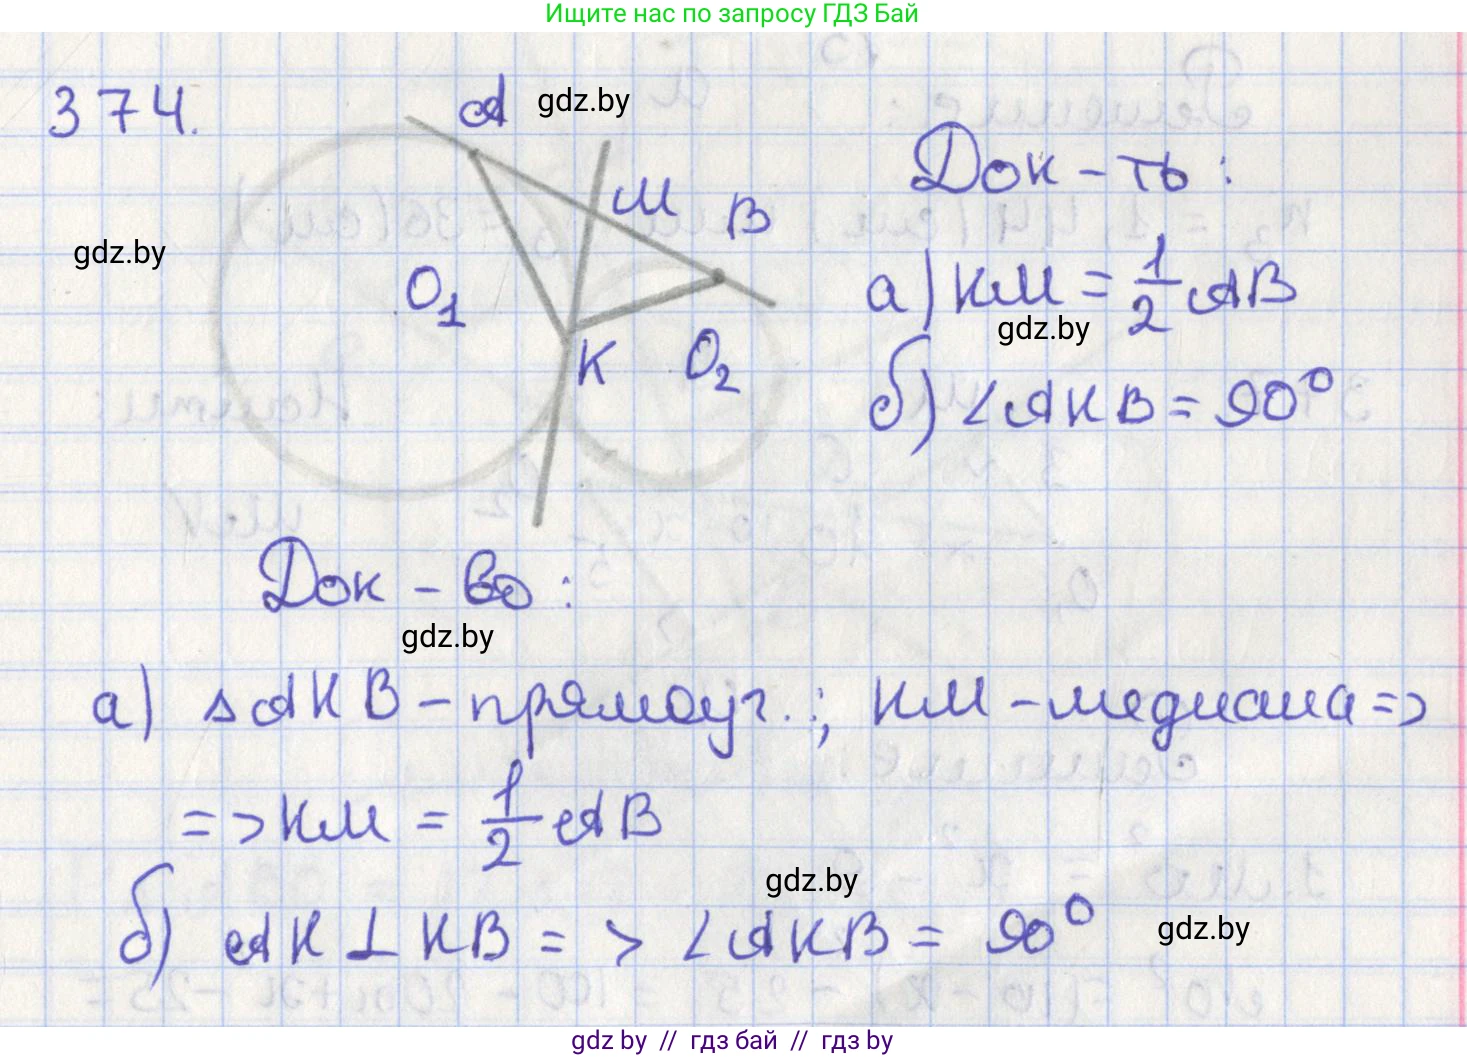 Ищите нас по запросу ГДЗ Бай
374.
A
gdz.by
M
B
O₁
K
O₂
gdz.by
Док-ть:
а) KM = 1/2 AB
gdz.by
б) ∠AKB = 90°
Док-во:
gdz.by
а) △AKB - прямоуг.; KM - медиана =>
=> KM = 1/2 AB
gdz.by
б) AK ⊥ KB => ∠AKB = 90°
gdz.by
gdz by // гдз бай // гдз by